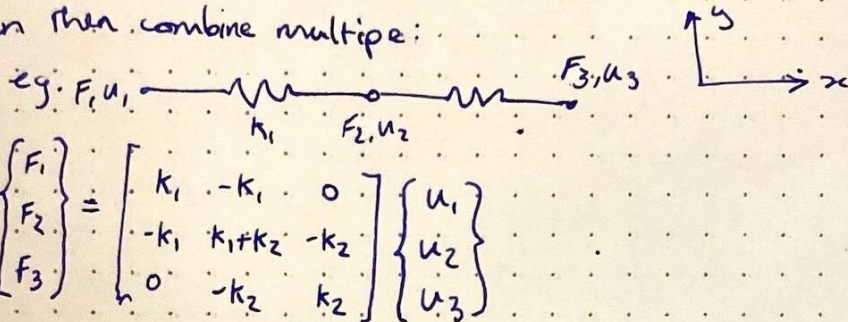 n then combine multipe:
y
eg. F₁u₁ F₃,u₃ x
k₁ F₂,u₂
{F₁ F₂ F₃} = [k₁ -k₁ 0
-k₁ k₁+k₂ -k₂
0 -k₂ k₂] {u₁ u₂ u₃}